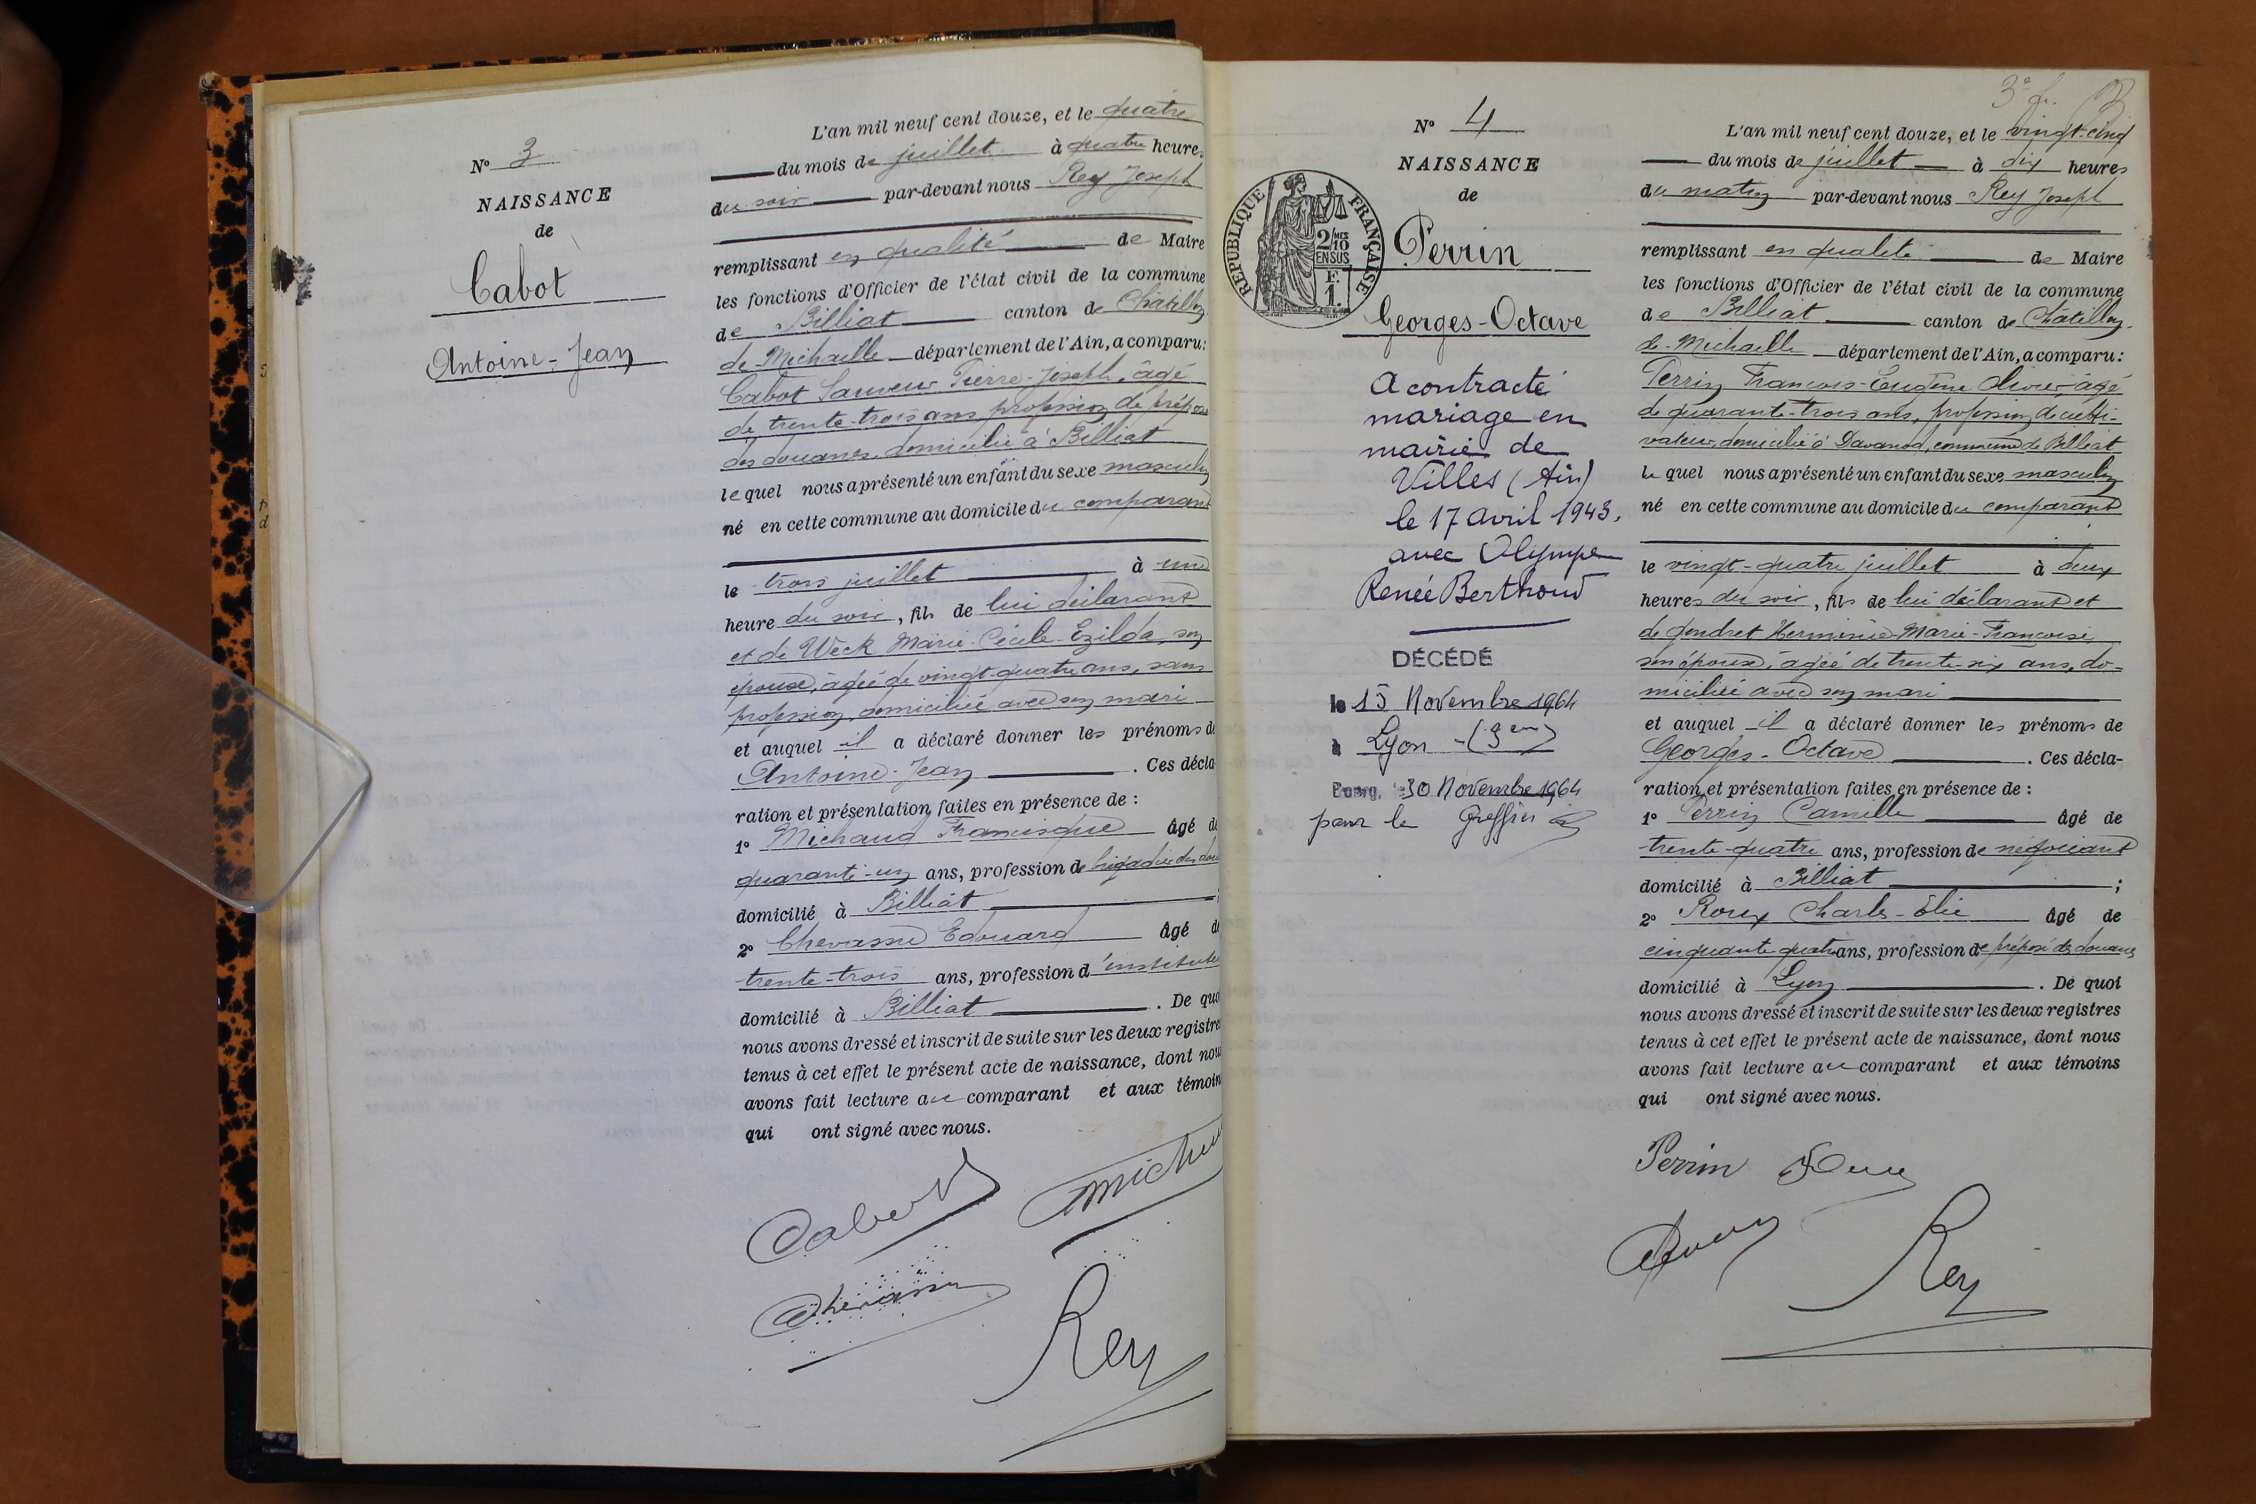 N° 3
NAISSANCE
de
Cabot
Antoine-Jean
L'an mil neuf cent douze, et le quatre
du mois de juillet à quatre heures
du soir par-devant nous Rey Joseph
remplissant en qualité de Maire
les fonctions d'Officier de l'état civil de la commune
de Billiat canton de Châtillon
de Michaille département de l'Ain, a comparu:
Cabot Sauveur Pierre-Joseph, âgé
de trente-trois ans, profession de préposé
des douanes, domicilié à Billiat
lequel nous a présenté un enfant du sexe masculin
né en cette commune au domicile du comparant
le trois juillet à une
heure du soir, fils de lui déclarant
et de Weck Marie-Cécile-Ezilda, son
épouse, âgée de vingt-quatre ans, sans
profession, domiciliée avec son mari
et auquel il a déclaré donner les prénoms de
Antoine-Jean. Ces décla-
ration et présentation faites en présence de :
1° Michaud Francisque âgé de
quarante-un ans, profession de brigadier des dou
domicilié à Billiat ;
2° Chevassu Edouard âgé de
trente-trois ans, profession d'institute
domicilié à Billiat. De quoi
nous avons dressé et inscrit de suite sur les deux registres
tenus à cet effet le présent acte de naissance, dont nous
avons fait lecture au comparant et aux témoins
qui ont signé avec nous.
Cabot
Michaud
Chevassu
Rey
3e f.
N° 4
NAISSANCE
de
Perrin
Georges-Octave
RÉPUBLIQUE FRANÇAISE
2/MES
10
EN SUS
F.
1.
A contracté
mariage en
mairie de
Villes (Ain)
le 17 avril 1943,
avec Olympe
Renée Berthoud
DÉCÉDÉ
le 15 Novembre 1964
à Lyon - (3em)
Bourg, le 30 Novembre 1964
pour le Greffier
L'an mil neuf cent douze, et le vingt-cinq
du mois de juillet à dix heures
du matin par-devant nous Rey Joseph
remplissant en qualité de Maire
les fonctions d'Officier de l'état civil de la commune
de Billiat canton de Châtillon-
de-Michaille département de l'Ain, a comparu:
Perrin François-Eugène Olivier, âgé
de quarante-trois ans, profession de culti-
vateur, domicilié à Davanod, commune de Billiat
lequel nous a présenté un enfant du sexe masculin
né en cette commune au domicile du comparant
le vingt-quatre juillet à deux
heures du soir, fils de lui déclarant et
de Gendret Herminie-Marie-Françoise
son épouse, âgée de trente-six ans, do-
miciliée avec son mari
et auquel il a déclaré donner les prénoms de
Georges-Octave. Ces décla-
ration et présentation faites en présence de :
1° Perrin Camille âgé de
trente-quatre ans, profession de négociant
domicilié à Billiat ;
2° Roux Charles-Elie âgé de
cinquante quatre ans, profession de préposé des douanes
domicilié à Lyon. De quoi
nous avons dressé et inscrit de suite sur les deux registres
tenus à cet effet le présent acte de naissance, dont nous
avons fait lecture au comparant et aux témoins
qui ont signé avec nous.
Perrin
Rey